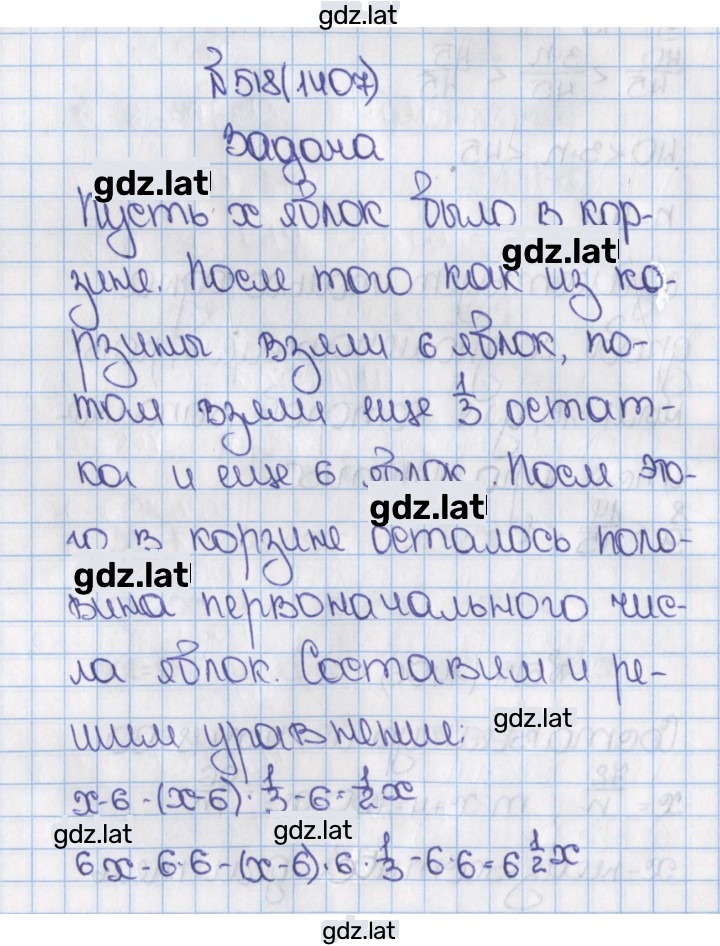 gdz.lat
№518(1407)
Задача
gdz.lat
Пусть x яблок было в кор-
gdz.lat
зине. После того как из ко-
рзины взяли 6 яблок, по-
том взяли еще 1/3 остат-
ка и еще 6 яблок. После это-
gdz.lat
го в корзине осталось поло-
gdz.lat
вина первоначального чис-
ла яблок. Составим и ре-
шим уравнение:
gdz.lat
x-6-(x-6)·1/3-6=1/2x
gdz.lat gdz.lat
6x-6·6-(x-6)·6·1/3-6·6=6 1/2x
gdz.lat